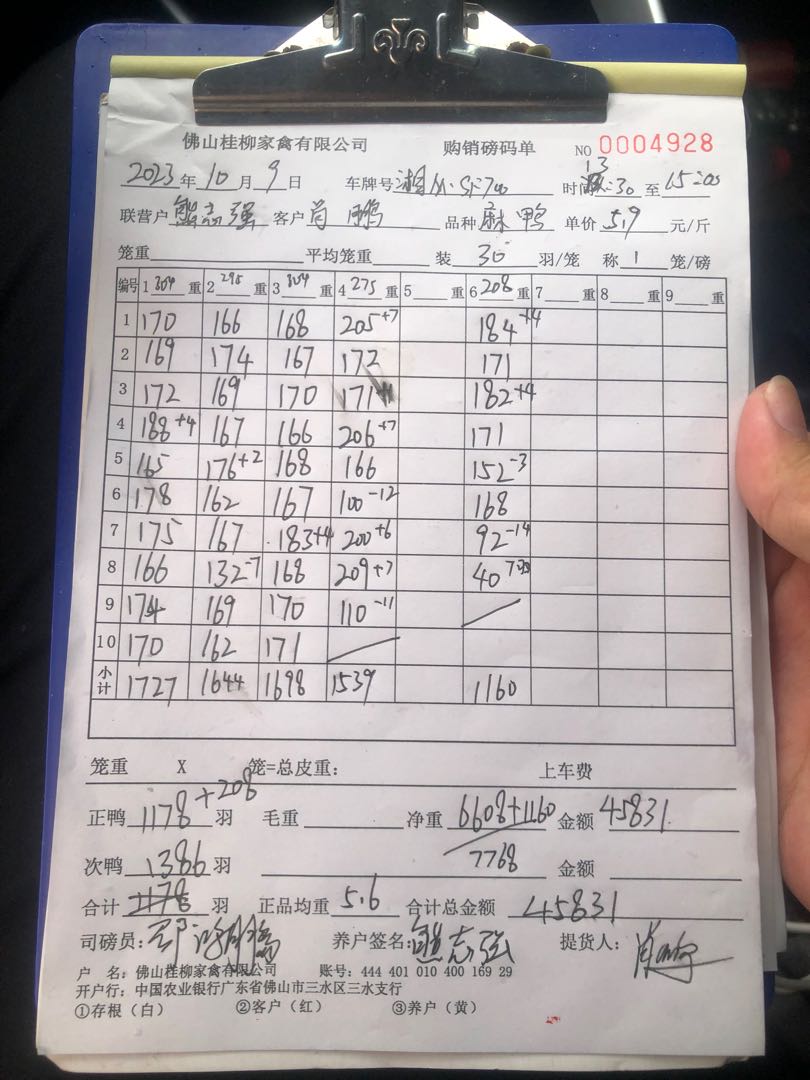 佛山桂柳家禽有限公司 购销磅码单 NO 0004928
2023 年 10 月 9 日 车牌号 湘 时间 13:30 至 15:00
联营户 熊志强 客户 肖鹏 品种 麻鸭 单价 5.9 元/斤
笼重 平均笼重 装 30 羽/笼 称 1 笼/磅
编号 1 304 重 2 295 重 3 304 重 4 275 重 5 重 6 208 重 7 重 8 重 9 重
1 170 166 168 205+7 184+4
2 169 174 167 172 171
3 172 169 170 171 182+4
4 188+4 167 166 206+7 171
5 165 176+2 168 166 152-3
6 178 162 167 100-12 168
7 175 167 183+4 200+6 92-14
8 166 132-7 168 209+7 40
9 174 169 170 110-11
10 170 162 171
小计 1727 1644 1698 1539 1160
笼重 X 笼=总皮重: 上车费
正鸭 1178+208 羽 毛重 净重 6608+1160 金额 45831
次鸭 1386 羽 7768 金额
合计 1178 羽 正品均重 5.6 合计总金额 45831
司磅员: 养户签名: 熊志强 提货人:
户 名: 佛山桂柳家禽有限公司 账号: 444 401 010 400 169 29
开户行: 中国农业银行广东省佛山市三水区三水支行
①存根(白) ②客户(红) ③养户(黄)